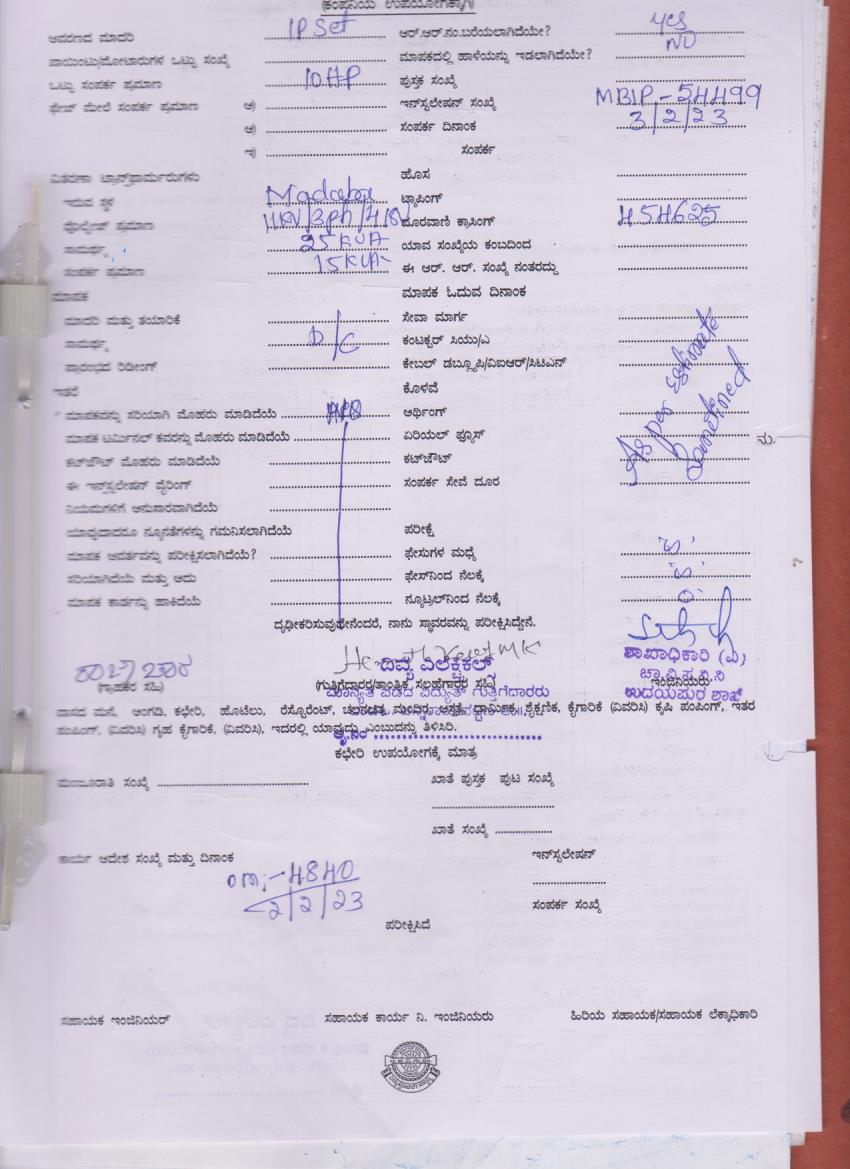 (ಕಂಪನಿಯ ಉಪಯೋಗಕ್ಕಾಗಿ)
ಆವರಣದ ಮಾದರಿ IP Set ಆರ್.ಆರ್.ನಂ.ಬರೆಯಲಾಗಿದೆಯೇ? yes
ಪಾಯಿಂಟು/ಮೋಟಾರುಗಳ ಒಟ್ಟು ಸಂಖ್ಯೆ ಮಾಪಕದಲ್ಲಿ ಹಾಳೆಯನ್ನು ಇಡಲಾಗಿದೆಯೇ? NO
ಒಟ್ಟು ಸಂಪರ್ಕ ಪ್ರಮಾಣ 10HP ಪುಸ್ತಕ ಸಂಖ್ಯೆ
ಫೇಜ್ ಮೇಲೆ ಸಂಪರ್ಕ ಪ್ರಮಾಣ ಅ) ಇನ್‌ಸ್ಟಲೇಷನ್ ಸಂಖ್ಯೆ MBIP-54499
ಆ) ಸಂಪರ್ಕ ದಿನಾಂಕ 3/2/23
ಇ) ಸಂಪರ್ಕ
ವಿತರಣಾ ಟ್ರಾನ್ಸ್‌ಫಾರ್ಮರುಗಳು ಹೊಸ
ಇರುವ ಸ್ಥಳ ಟ್ಯಾಪಿಂಗ್
ವೋಲ್ಟೇಜ್ ಪ್ರಮಾಣ 11KV/3ph/ ದೂರವಾಣಿ ಕ್ರಾಸಿಂಗ್ 454625
ಸಾಮರ್ಥ್ಯ 25KVA ಯಾವ ಸಂಖ್ಯೆಯ ಕಂಬದಿಂದ
ಸಂಪರ್ಕ ಪ್ರಮಾಣ 15KVA ಈ ಆರ್. ಆರ್. ಸಂಖ್ಯೆ ನಂತರದ್ದು
ಮಾಪಕ ಮಾಪಕ ಓದುವ ದಿನಾಂಕ
ಮಾದರಿ ಮತ್ತು ತಯಾರಿಕೆ ಸೇವಾ ಮಾರ್ಗ
ಸಾಮರ್ಥ್ಯ D/C ಕಂಟಕ್ಟರ್ ಸಿಯು/ಎ
ಪ್ರಾರಂಭದ ರಿಡೀಂಗ್ ಕೇಬಲ್ ಡಬ್ಲ್ಯೂಪಿ/ವಿಐಆರ್/ಸಿಟಿಎಸ್
ಇತರೆ ಕೊಳವೆ
ಮಾಪಕವನ್ನು ಸರಿಯಾಗಿ ಮೊಹರು ಮಾಡಿದೆಯೆ ಅರ್ಥಿಂಗ್ As per Estimate
ಮಾಪಕ ಟರ್ಮಿನಲ್ ಕವರನ್ನು ಮೊಹರು ಮಾಡಿದೆಯೆ ಏರಿಯಲ್ ಫ್ಯೂಸ್ ನು.
ಕಟ್‌ಔಟ್ ಮೊಹರು ಮಾಡಿದೆಯೆ ಕಟ್‌ಔಟ್
ಈ ಇನ್‌ಸ್ಟಲೇಷನ್ ವೈರಿಂಗ್ ಸಂಪರ್ಕ ಸೇವೆ ದೂರ
ನಿಯಮಗಳಿಗೆ ಅನುಸಾರವಾಗಿದೆಯೆ
ಯಾವುದಾದರೂ ನ್ಯೂನತೆಗಳನ್ನು ಗಮನಿಸಲಾಗಿದೆಯೆ ಪರೀಕ್ಷೆ
ಮಾಪಕ ಆವರ್ತವನ್ನು ಪರೀಕ್ಷಿಸಲಾಗಿದೆಯೆ? ಫೇಸುಗಳ ಮಧ್ಯೆ
ಸರಿಯಾಗಿದೆಯೆ ಮತ್ತು ಅದು ಫೇಸ್‌ನಿಂದ ನೆಲಕ್ಕೆ
ಮಾಪಕ ಕಾರ್ಡನ್ನು ಹಾಕಿದೆಯೆ ನ್ಯೂಟ್ರಲ್‌ನಿಂದ ನೆಲಕ್ಕೆ
ದೃಢೀಕರಿಸುವುದೇನೆಂದರೆ, ನಾನು ಸ್ಥಾವರವನ್ನು ಪರೀಕ್ಷಿಸಿದ್ದೇನೆ.
ದಿವ್ಯ ಎಲೆಕ್ಟ್ರಿಕಲ್ ಶಾಖಾಧಿಕಾರಿ (ವಿ)
(ಗ್ರಾಹಕರ ಸಹಿ) (ಗುತ್ತಿಗೆದಾರರ/ತಾಂತ್ರಿಕ ಸಲಹೆಗಾರರ ಸಹಿ) ಇಂಜಿನಿಯರು
ಮಾನ್ಯತೆ ಪಡೆದ ವಿದ್ಯುತ್ ಗುತ್ತಿಗೆದಾರರು ಉದಯಪುರ ಶಾಖೆ
ವಾಸದ ಮನೆ, ಅಂಗಡಿ, ಕಛೇರಿ, ಹೊಟೇಲು, ರೆಸ್ಟೊರೆಂಟ್, ಚಲನಚಿತ್ರ ಮಂದಿರ, ಆಸ್ಪತ್ರೆ, ಧಾರ್ಮಿಕ, ಶೈಕ್ಷಣಿಕ, ಕೈಗಾರಿಕೆ (ವಿವರಿಸಿ) ಕೃಷಿ ಪಂಪಿಂಗ್, ಇತರ
ಪಂಪಿಂಗ್, (ವಿವರಿಸಿ) ಗೃಹ ಕೈಗಾರಿಕೆ, (ವಿವರಿಸಿ), ಇದರಲ್ಲಿ ಯಾವುದ್ದು ಎಂಬುದನ್ನು ತಿಳಿಸಿರಿ.
ಕಛೇರಿ ಉಪಯೋಗಕ್ಕೆ ಮಾತ್ರ
ಮಂಜೂರಾತಿ ಸಂಖ್ಯೆ ಖಾತೆ ಪುಸ್ತಕ ಪುಟ ಸಂಖ್ಯೆ
ಖಾತೆ ಸಂಖ್ಯೆ
ಕಾರ್ಯ ಆದೇಶ ಸಂಖ್ಯೆ ಮತ್ತು ದಿನಾಂಕ ಇನ್‌ಸ್ಟಲೇಷನ್
om:-4840
2/2/23 ಸಂಪರ್ಕ ಸಂಖ್ಯೆ
ಪರೀಕ್ಷಿಸಿದೆ
ಸಹಾಯಕ ಇಂಜಿನಿಯರ್ ಸಹಾಯಕ ಕಾರ್ಯ ನಿ. ಇಂಜಿನಿಯರು ಹಿರಿಯ ಸಹಾಯಕ/ಸಹಾಯಕ ಲೆಕ್ಕಾಧಿಕಾರಿ